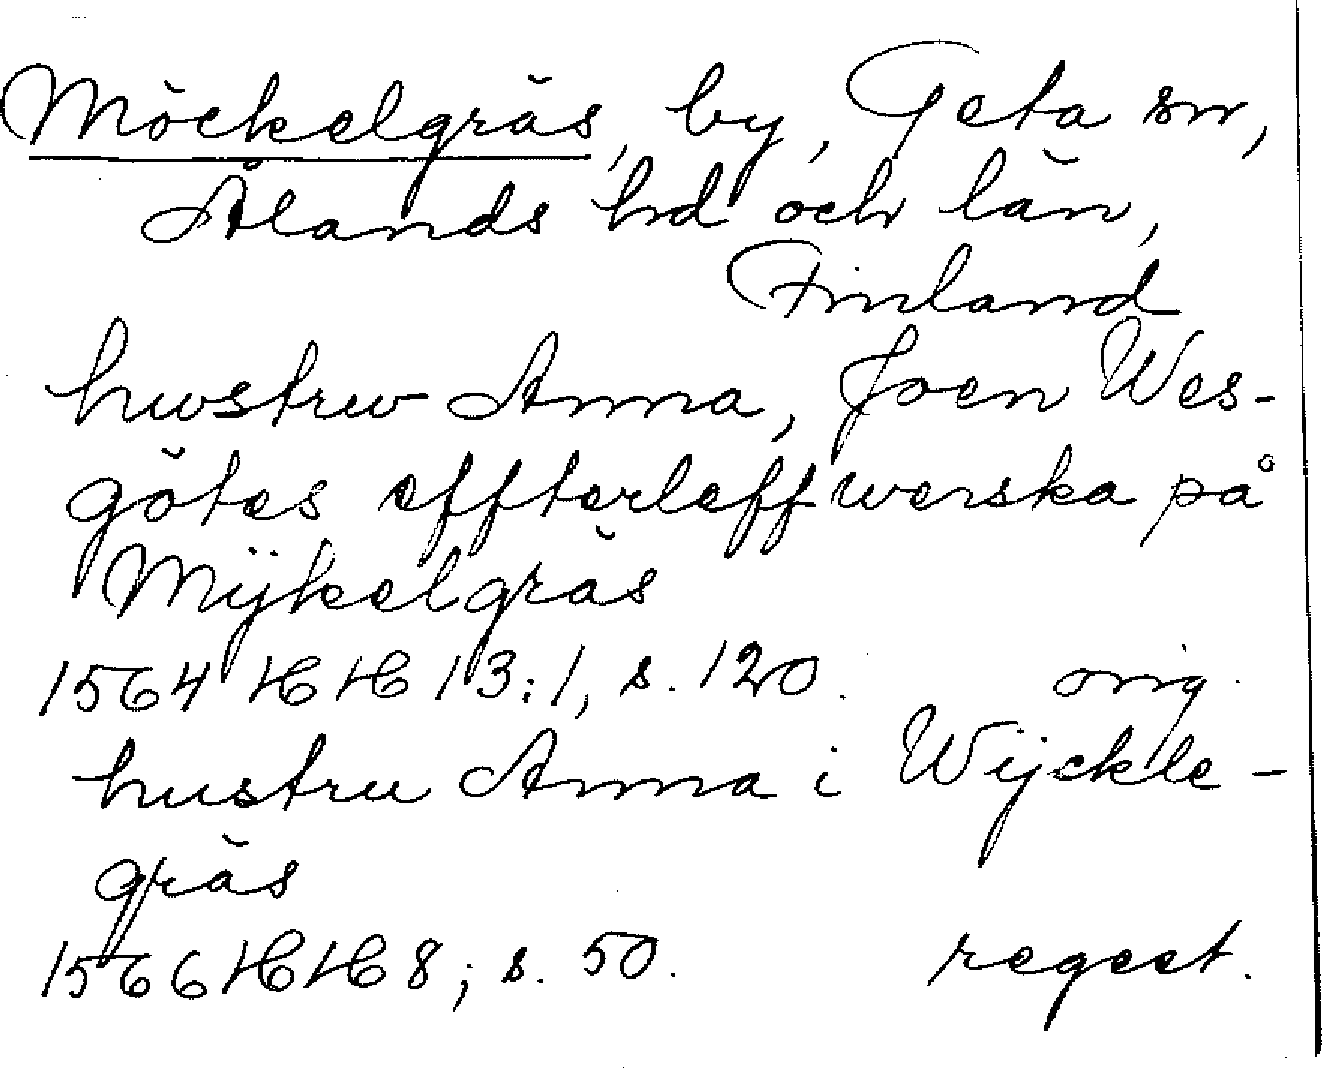 Möckelgräs, by, Geta sn,
Ålands hd och län,
Finland
hwstrw Anna, Joen Wes-
götes effterleffwerska på
Mÿkelgräs
1564 HH 13:1, s. 120. orig.
hustru Anna i Wijckle-
gräs
1566 HH 8; s. 50. regest.